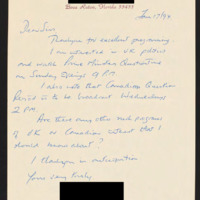 Boca Raton, Florida 33433
Jan 17/94
Dear Sir:
Thankyou for excellent programming.
I am interested in UK politics
and watch Prime Minister Question time
on Sunday Evenings 9 PM.
I also note that Canadian Question
Period is to be broadcast Wednesdays
2 PM.
Are there any other such programs
of UK or Canadian content that I
should know about?
I thankyou in anticipation
Yours very truly